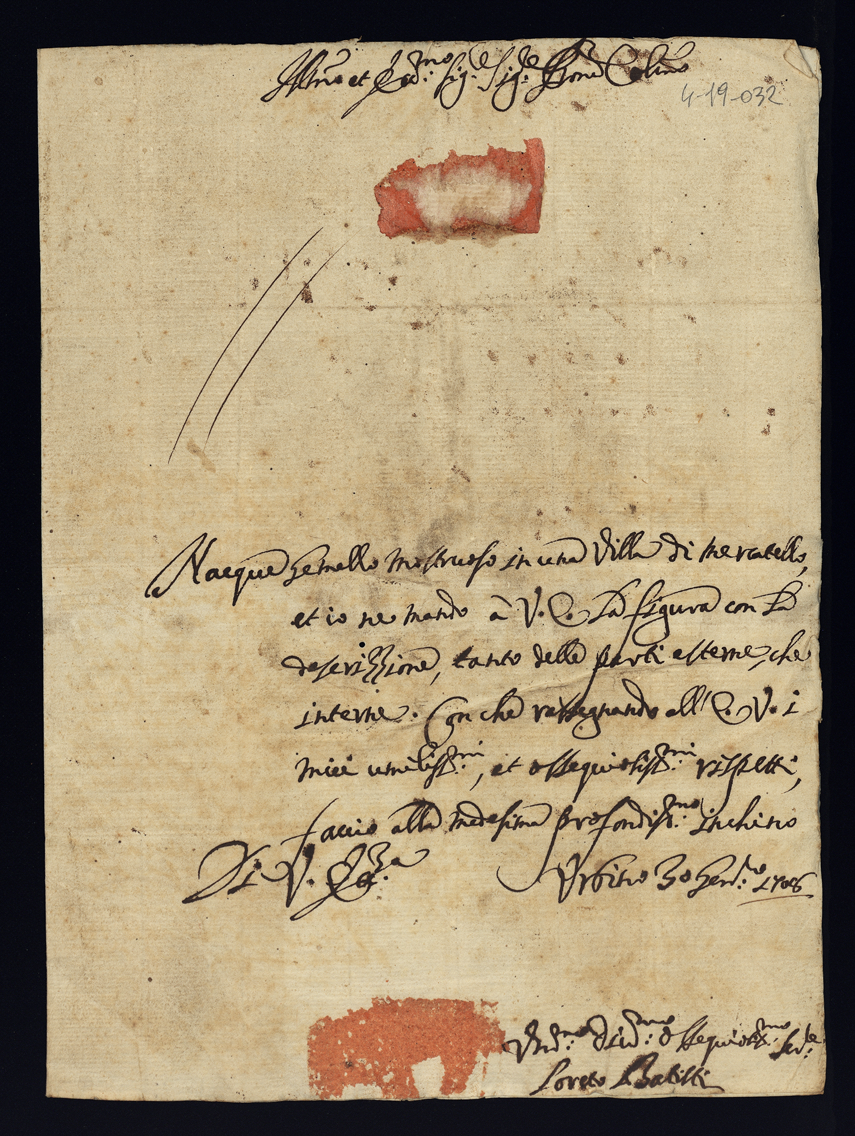 Illmo et Ecc.mo Sig.e Sig.e Pron Colmo
4-19-032
Nacque Gemello mostruoso in una Villa di Mercatello,
et io ne mando à V. E. La figura con La
descrizzione, tanto delle parti esterne, che
interne. Con che rassegnando all' E. V. i
miei umiliss.mi, et ossequiosiss.mi rispetti,
faccio alla medesima profondiss.mo inchino
Di V. Ecc.za
Urbino 30 Gen.o 1706
Um.mo Div.mo Ossequiosiss.mo Ser.e
Loreto Batisti